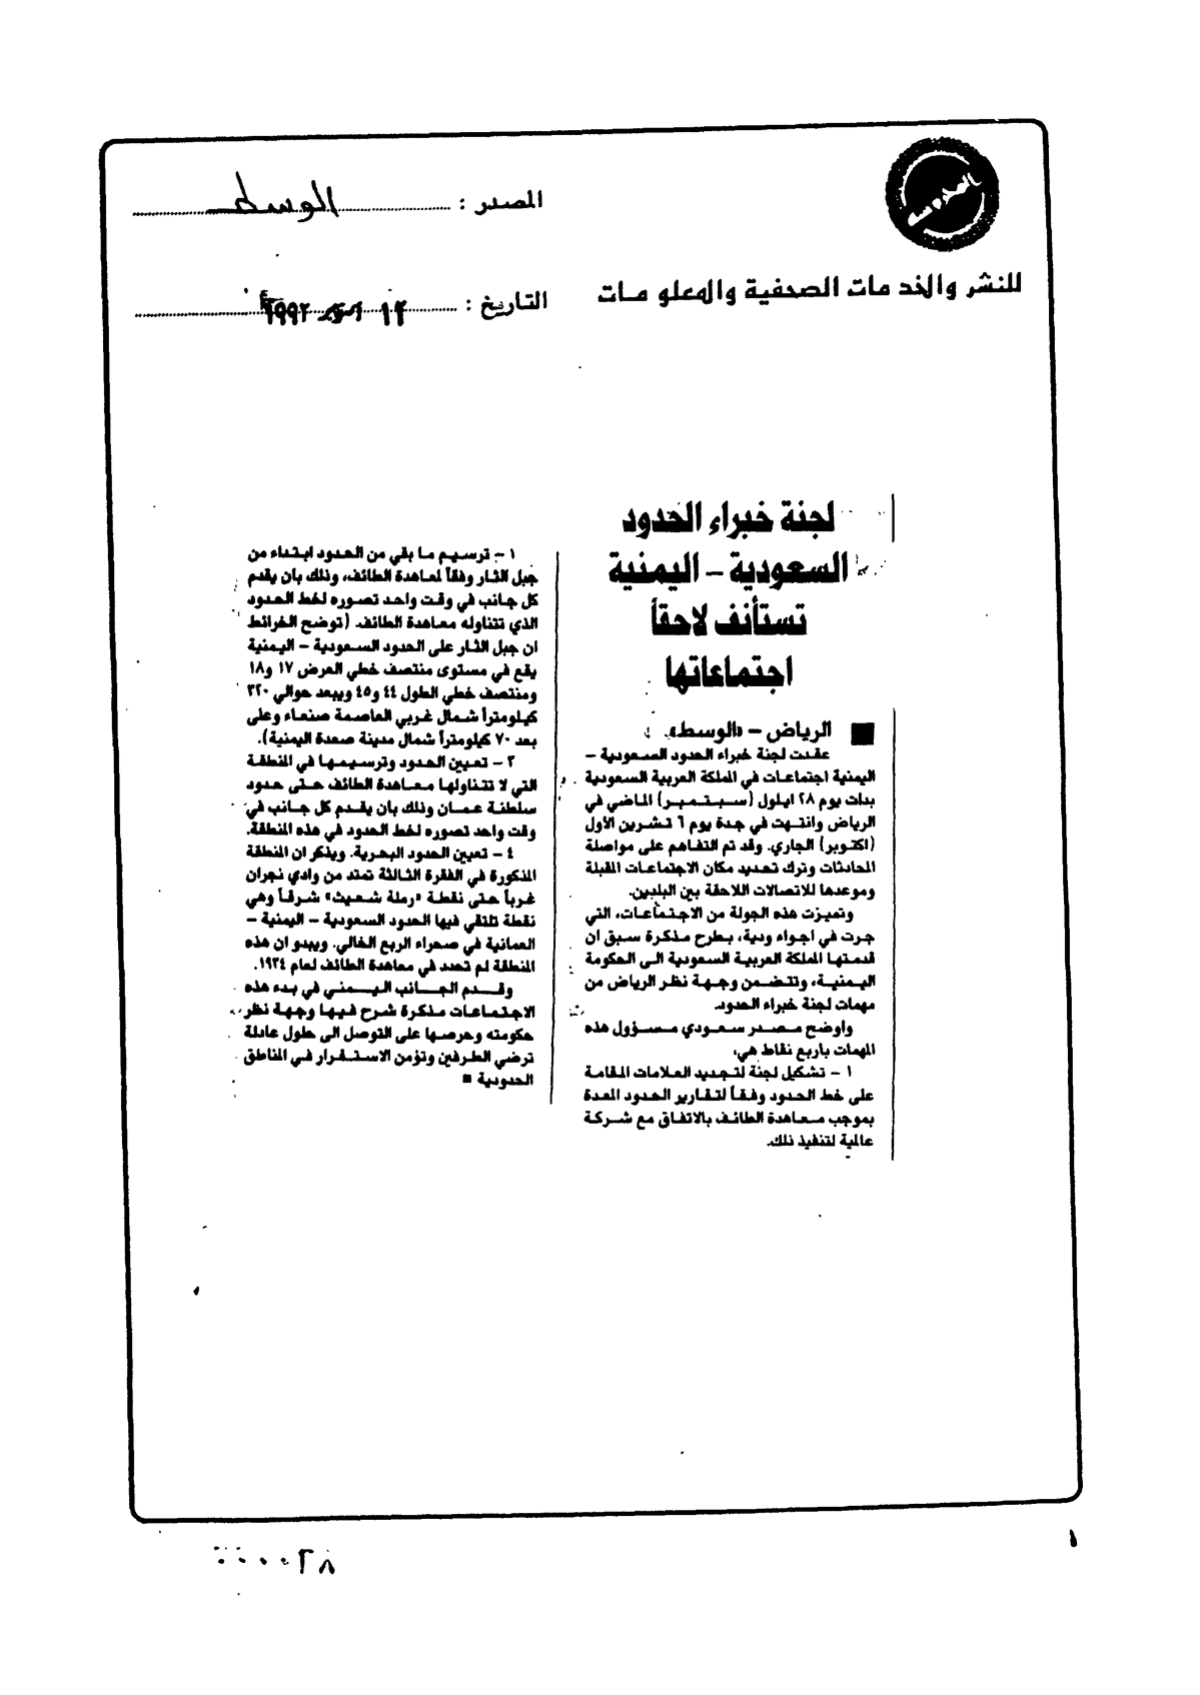 المصدر : الوسط
للنشر والخدمات الصحفية والمعلومات
التاريخ : ١٢ اكتوبر ١٩٩٢
لجنة خبراء الحدود
السعودية – اليمنية
تستأنف لاحقاً
اجتماعاتها
الرياض – «الوسط»
عقدت لجنة خبراء الحدود السعودية –
اليمنية اجتماعات في المملكة العربية السعودية
بدات يوم ٢٨ ايلول (سبتمبر) الماضي في
الرياض وانتهت في جدة يوم ٦ تشرين الأول
(اكتوبر) الجاري. وقد تم التفاهم على مواصلة
المحادثات وترك تحديد مكان الاجتماعات المقبلة
وموعدها للاتصالات اللاحقة بين البلدين.
وتميزت هذه الجولة من الاجتماعات، التي
جرت في اجواء ودية، بطرح مذكرة سبق ان
قدمتها المملكة العربية السعودية الى الحكومة
اليمنية، وتتضمن وجهة نظر الرياض من
مهمات لجنة خبراء الحدود.
واوضح مصدر سعودي مسؤول هذه
المهمات باربع نقاط هي:
١ – تشكيل لجنة لتجديد العلامات المقامة
على خط الحدود وفقاً لتقارير الحدود المعدة
بموجب معاهدة الطائف بالاتفاق مع شركة
عالمية لتنفيذ ذلك.
١ – ترسيم ما بقي من الحدود ابتداء من
جبل الثار وفقاً لمعاهدة الطائف، وذلك بان يقدم
كل جانب في وقت واحد تصوره لخط الحدود
الذي تتناوله معاهدة الطائف. (توضح الخرائط
ان جبل الثار على الحدود السعودية – اليمنية
يقع في مستوى منتصف خطي العرض ١٧ و١٨
ومنتصف خطي الطول ٤٤ و٤٥ ويبعد حوالي ٢٢٠
كيلومتراً شمال غربي العاصمة صنعاء وعلى
بعد ٧٠ كيلومتراً شمال مدينة صعدة اليمنية).
٣ – تعيين الحدود وترسيمها في المنطقة
التي لا تتناولها معاهدة الطائف حتى حدود
سلطنة عمان وذلك بان يقدم كل جانب في
وقت واحد تصوره لخط الحدود في هذه المنطقة.
٤ – تعيين الحدود البحرية. ويذكر ان المنطقة
المذكورة في الفقرة الثالثة تمتد من وادي نجران
غرباً حتى نقطة «رملة شعيث» شرقاً وهي
نقطة تلتقي فيها الحدود السعودية – اليمنية –
العمانية في صحراء الربع الخالي. ويبدو ان هذه
المنطقة لم تحدد في معاهدة الطائف لعام ١٩٣٤.
وقدم الجانب اليمني في بدء هذه
الاجتماعات مذكرة شرح فيها وجهة نظر
حكومته وحرصها على التوصل الى حلول عادلة
ترضي الطرفين وتؤمن الاستقرار في المناطق
الحدودية ■
١